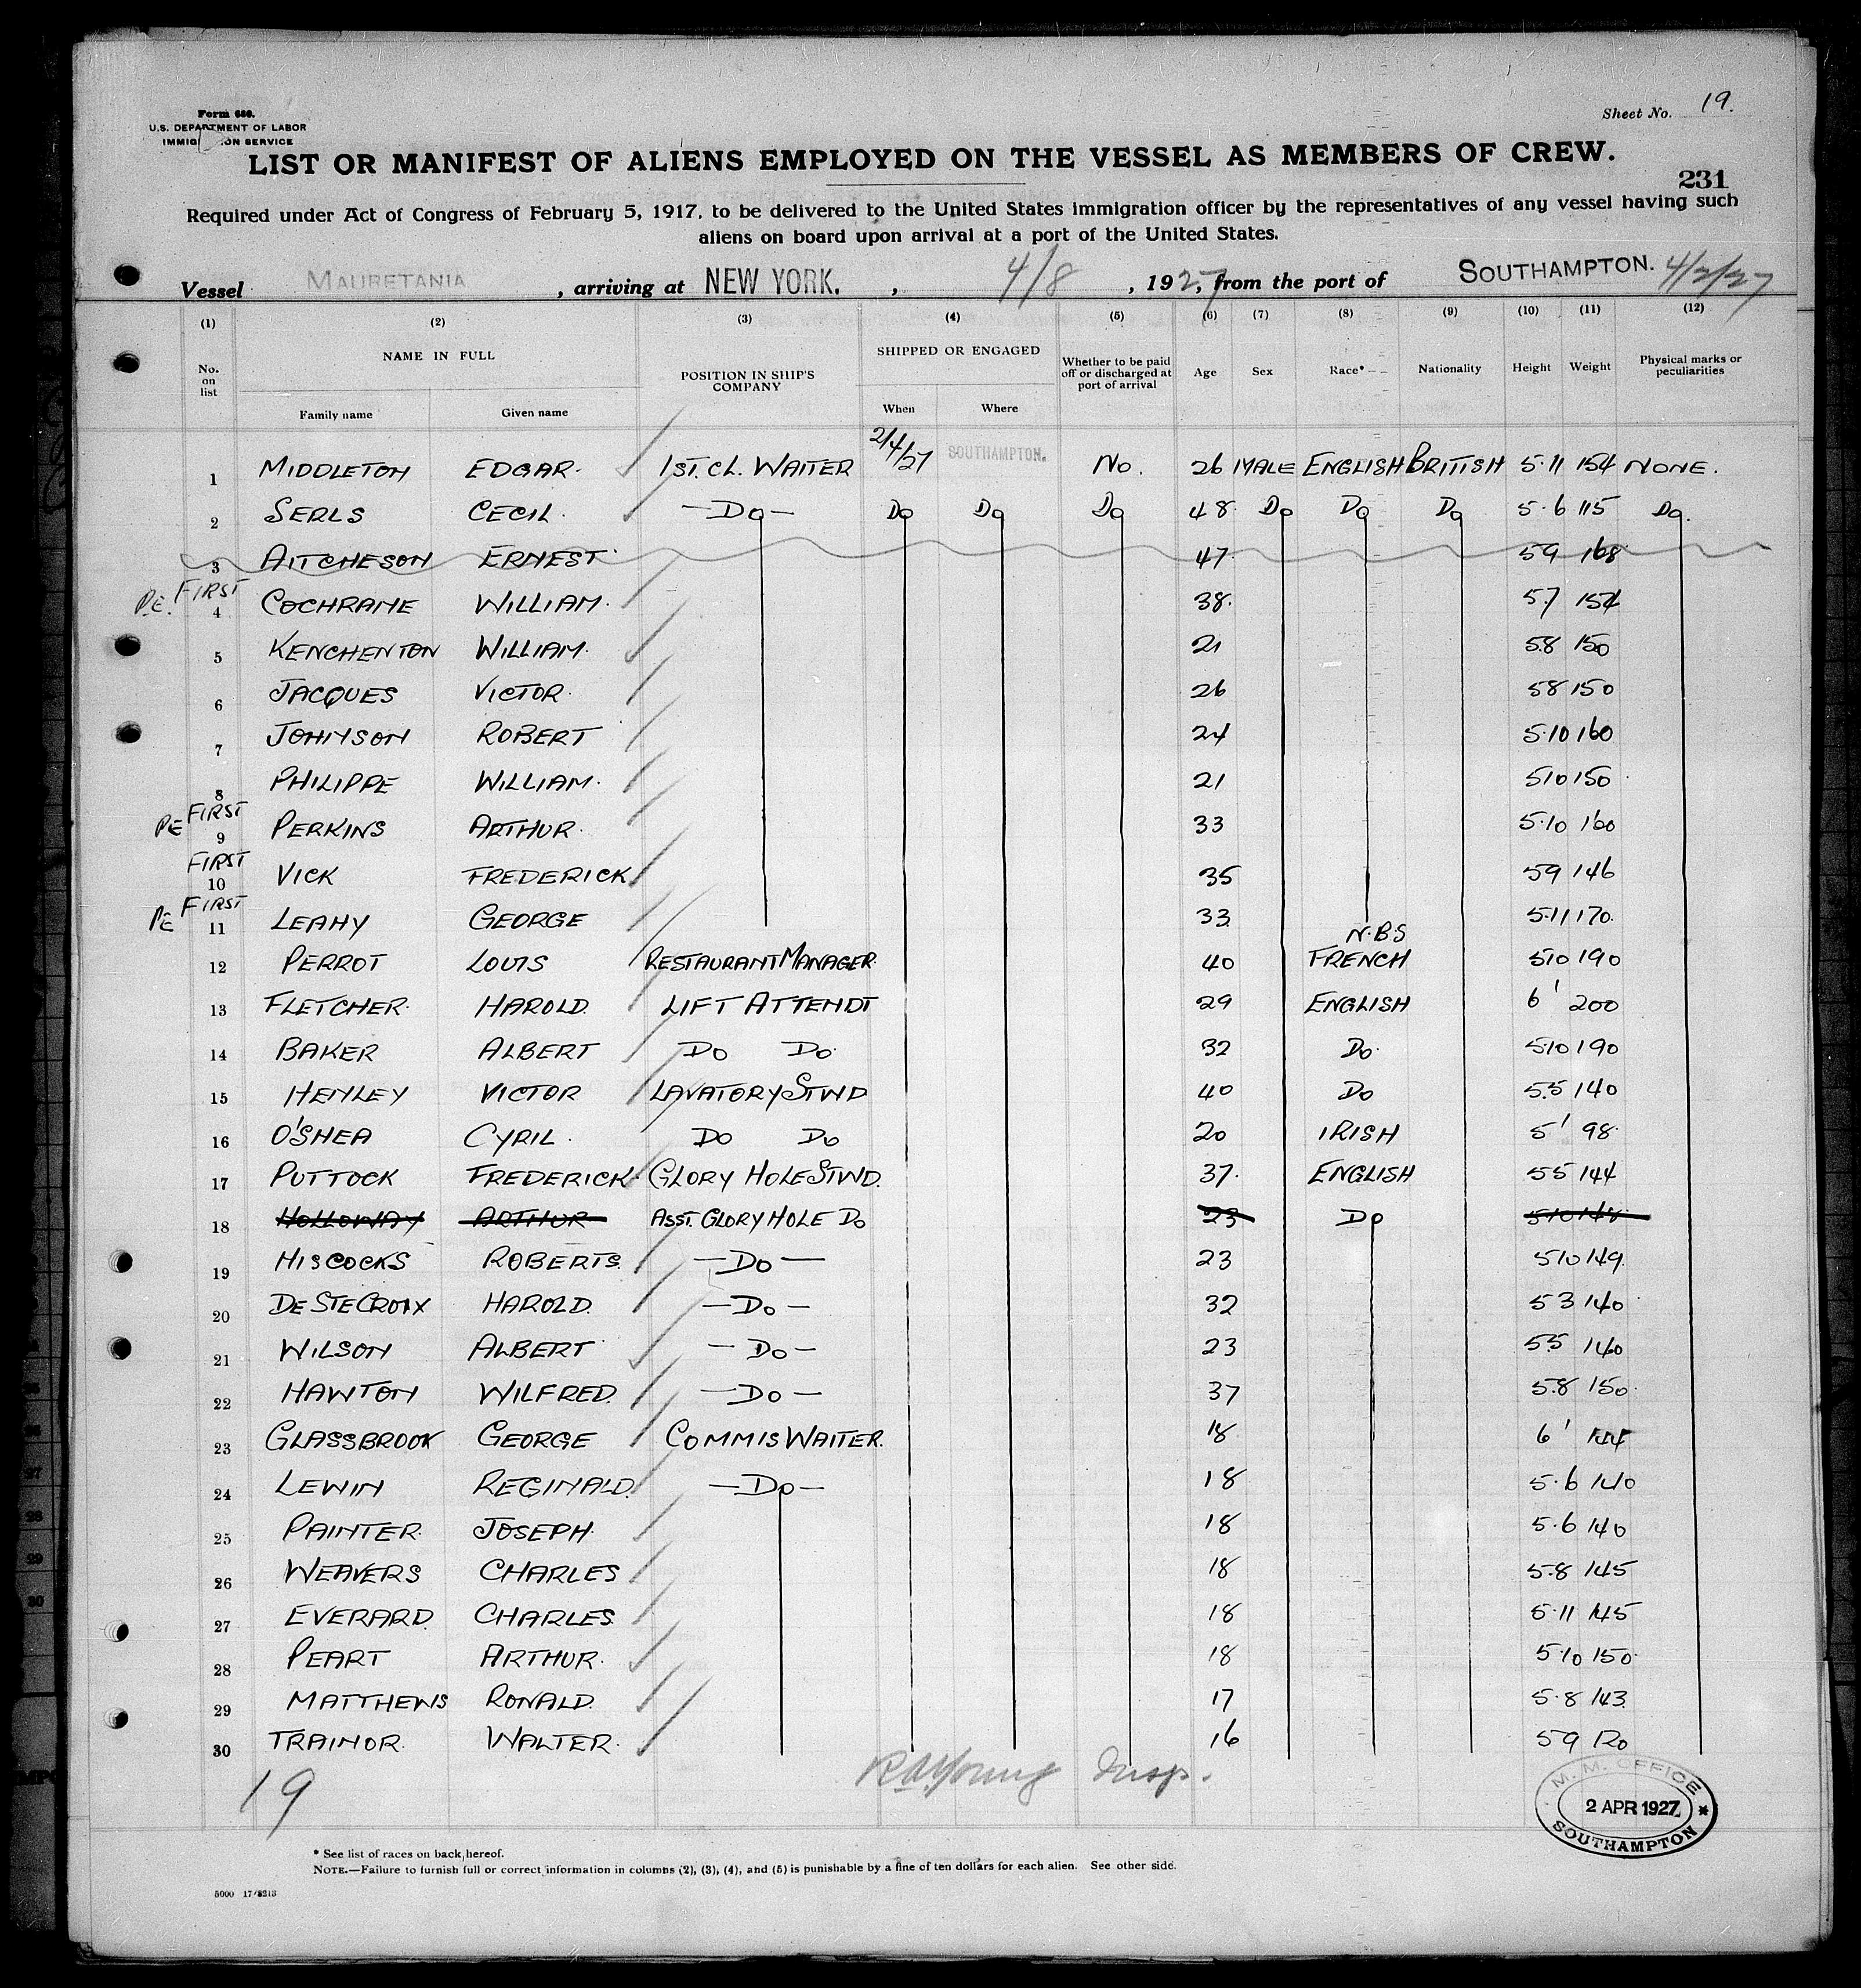 Form 680.
U.S. DEPARTMENT OF LABOR
IMMIGRATION SERVICE
Sheet No. 19.
LIST OR MANIFEST OF ALIENS EMPLOYED ON THE VESSEL AS MEMBERS OF CREW.
231
Required under Act of Congress of February 5, 1917, to be delivered to the United States immigration officer by the representatives of any vessel having such
aliens on board upon arrival at a port of the United States.
Vessel MAURETANIA , arriving at NEW YORK. , 4/8 , 1927, from the port of SOUTHAMPTON. 4/2/27
(1) (2) (3) (4) (5) (6) (7) (8) (9) (10) (11) (12)
No. on list NAME IN FULL Family name Given name POSITION IN SHIP'S COMPANY SHIPPED OR ENGAGED When Where Whether to be paid off or discharged at port of arrival Age Sex Race* Nationality Height Weight Physical marks or peculiarities
1 MIDDLETON EDGAR. 1ST. CL. WAITER 2/4/27 SOUTHAMPTON. No. 26 MALE ENGLISH BRITISH 5·11 154 NONE.
2 SERLS CECIL. —Do— Do Do Do 48 Do Do Do 5·6 115 Do.
3 AITCHESON ERNEST 47. 59 168
PE. FIRST 4 COCHRANE WILLIAM. 38. 5.7 154
5 KENCHENTON WILLIAM. 21 5.8 150
6 JACQUES VICTOR. 26 58 150
7 JOHNSON ROBERT 24 5·10 160
8 PHILIPPE WILLIAM. 21 510 150
PE FIRST 9 PERKINS ARTHUR. 33 5·10 160
FIRST 10 VICK FREDERICK 35 59 146
PE FIRST 11 LEAHY GEORGE 33 5·11 170.
12 PERROT LOUIS RESTAURANT MANAGER. 40 N.B.S FRENCH 510 190
13 FLETCHER. HAROLD. LIFT ATTENDT 29 ENGLISH 6' 200
14 BAKER ALBERT Do Do. 32 Do. 5·10 190
15 HENLEY VICTOR LAVATORY STWD 40 Do 5.5 140
16 O'SHEA CYRIL. Do Do 20 IRISH 5' 98.
17 PUTTOCK FREDERICK. GLORY HOLE STWD. 37. ENGLISH 55 144
18 HOLLOWAY ARTHUR ASST. GLORY HOLE Do 23 Do 510 148
19 HISCOCKS ROBERTS. —Do— 23 510 149.
20 DE STE CROIX HAROLD. —Do— 32 53 140
21 WILSON ALBERT —Do— 23 5.5 140
22 HAWTON WILFRED. —Do— 37 5.8 150.
23 GLASSBROOK GEORGE COMMIS WAITER. 18 6' 144
24 LEWIN REGINALD. —Do— 18 5·6 140
25 PAINTER. JOSEPH. 18 5.6 140
26 WEAVERS CHARLES 18 5·8 145
27 EVERARD. CHARLES 18 5·11 145
28 PEART ARTHUR. 18 5·10 150.
29 MATTHEWS RONALD. 17 5·8 143.
30 TRAINOR. WALTER. 16 59 120
19
R A Young Insp.
M. M. OFFICE
2 APR 1927
SOUTHAMPTON
* See list of races on back hereof.
NOTE.—Failure to furnish full or correct information in columns (2), (3), (4), and (5) is punishable by a fine of ten dollars for each alien. See other side.